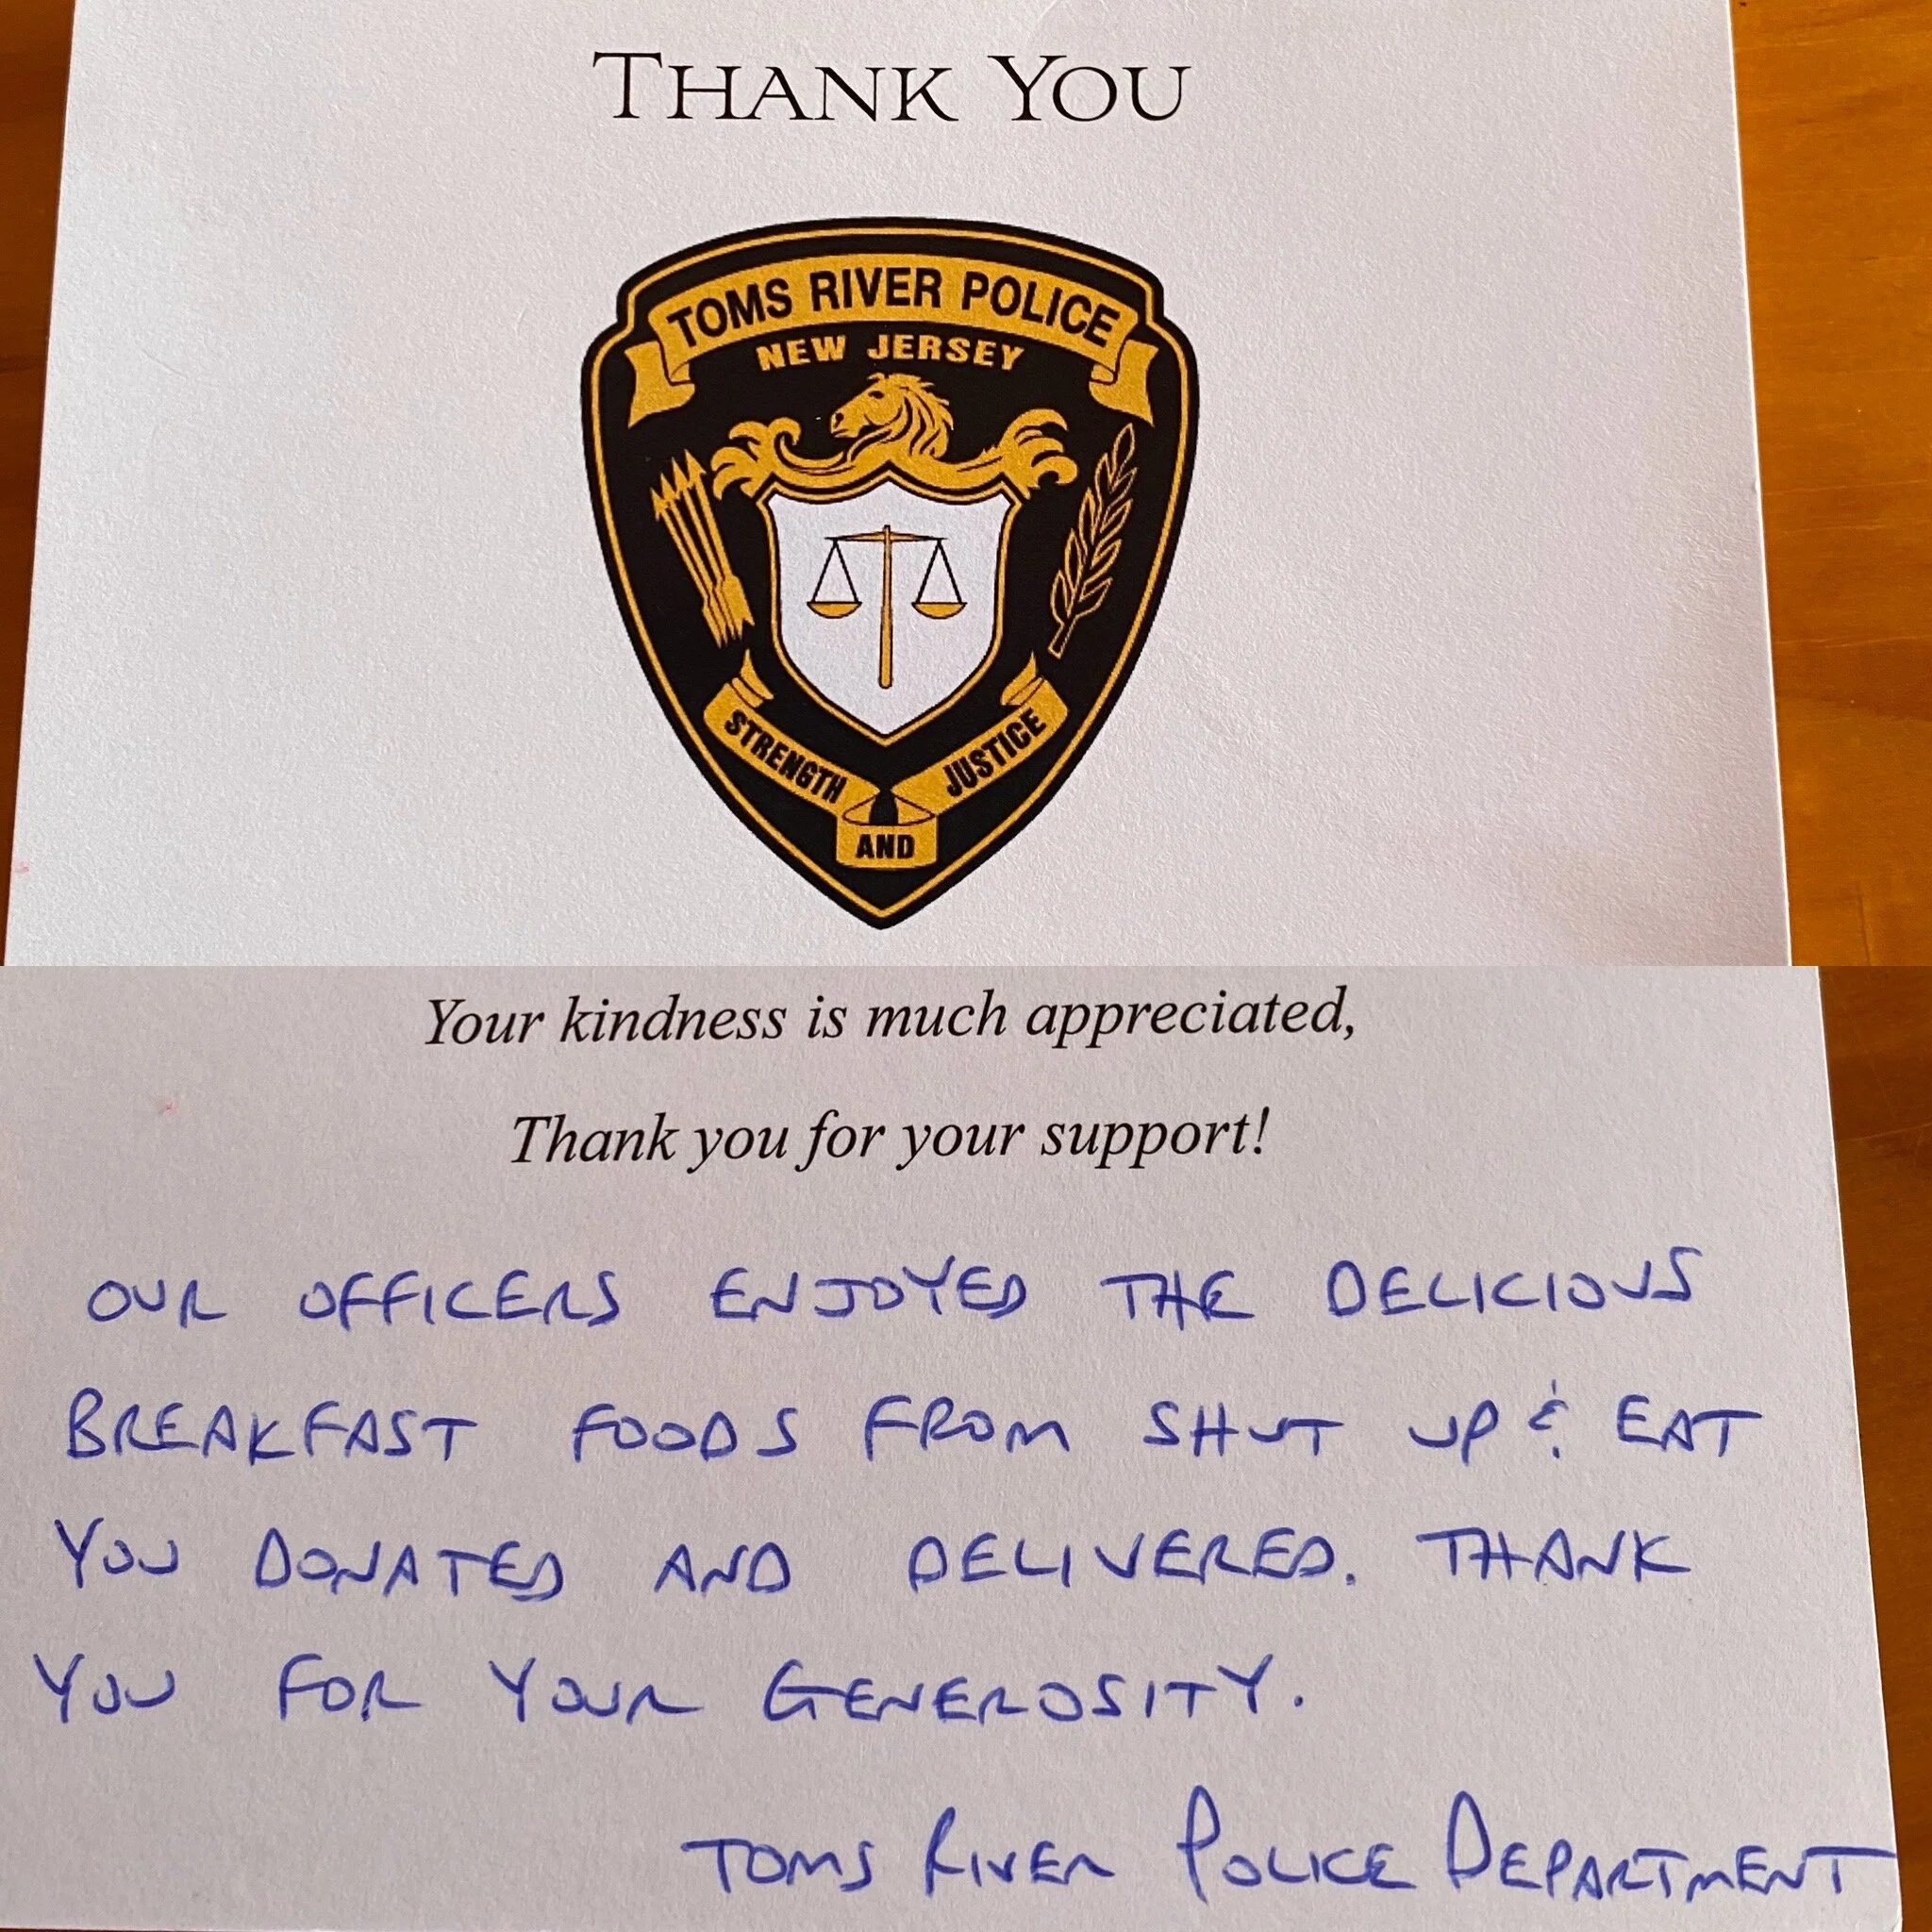 THANK YOU
TOMS RIVER POLICE
NEW JERSEY
STRENGTH
AND
JUSTICE
Your kindness is much appreciated,
Thank you for your support!
OUR OFFICERS ENJOYED THE DELICIOUS
BREAKFAST FOODS FROM SHUT UP & EAT
YOU DONATED AND DELIVERED. THANK
YOU FOR YOUR GENEROSITY.
TOMS RIVER POLICE DEPARTMENT